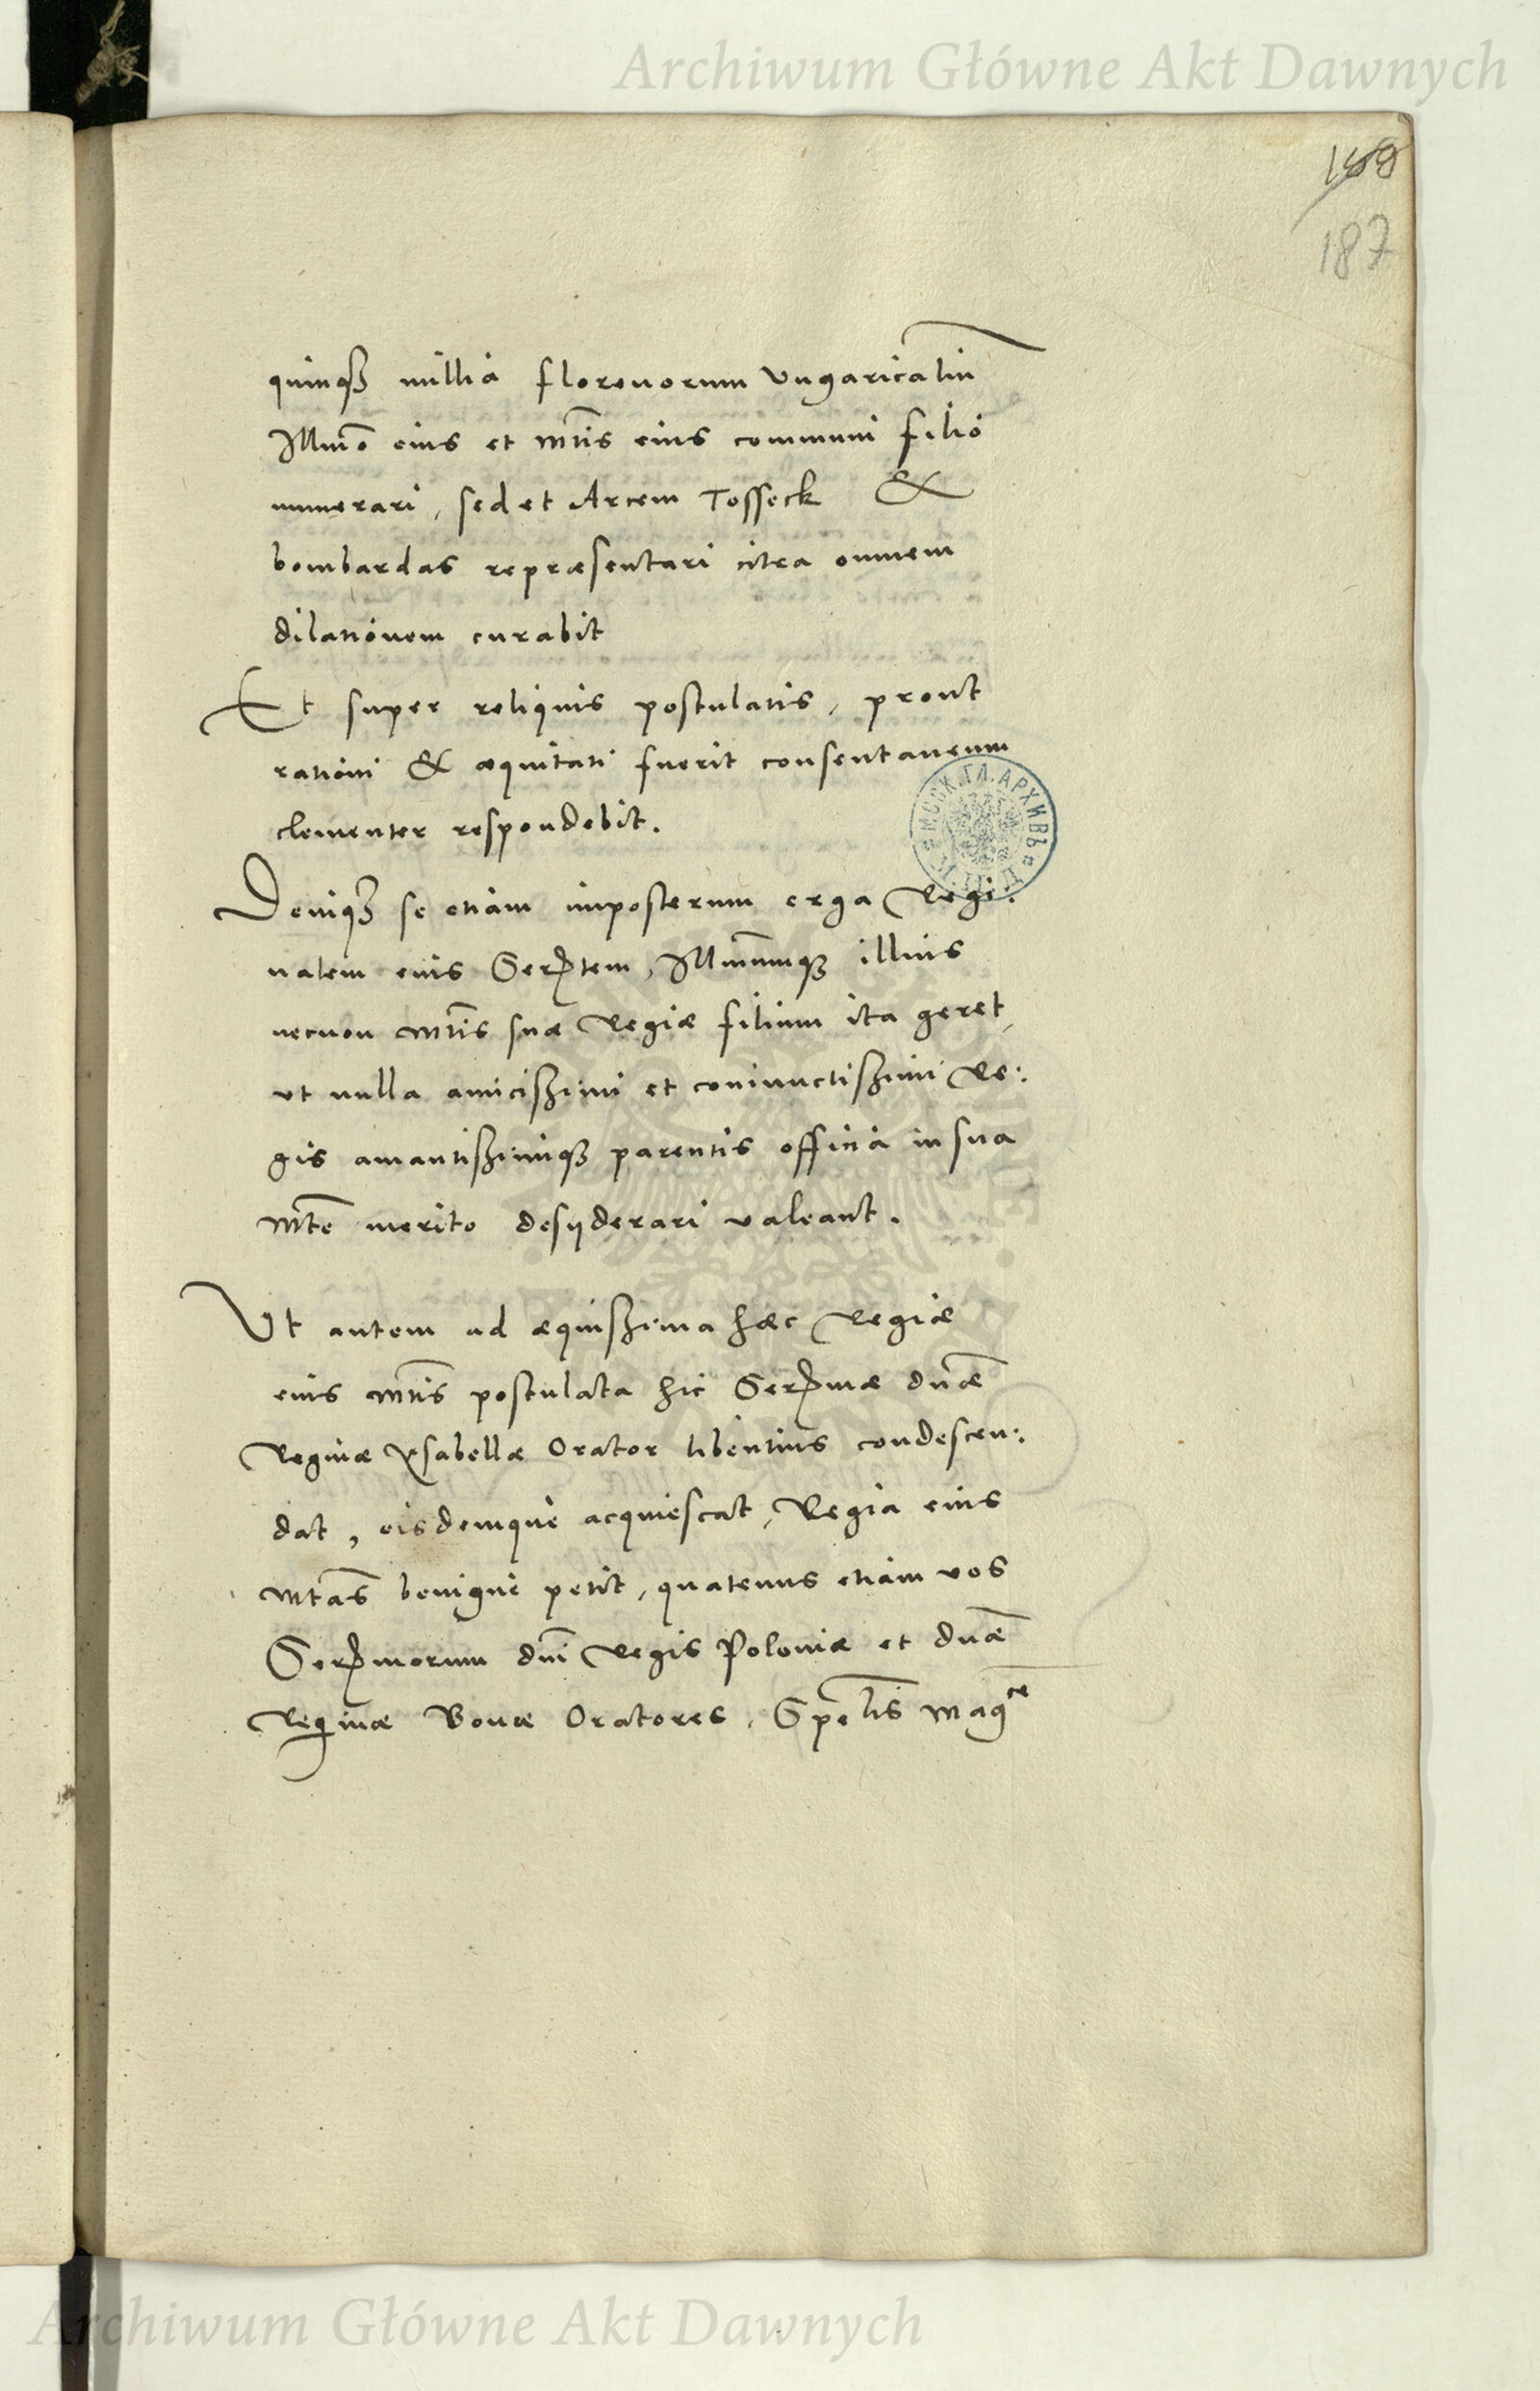 Archiwum Główne Akt Dawnych
187
quinq3 millia florenorum Vngaricaliu
Illmo eius et Mtis eius communi filio
numerari, sed et Arcem Tosseck &
bombardas repræsentari citra omnem
dilationem curabit
Et super reliquis postulatis, prout
rationi & æquitati fuerit consentaneum
clementer respondebit.
Deniq3 se etiam imposterum erga Regi:
nalem eius Sertem, Illmumq3 illius
necnon Mtis suæ Regiæ filium ita geret,
vt nulla amicissimi et coniunctissimi Re:
gis amantissimiq3 parentis officia in sua
Mte merito desyderari valeant.
Vt autem ad æquissima hæc Regiæ
eius Mtis postulata hic Sermæ dnæ
Reginæ Ysabellæ Orator libentius condescen:
dat, eisdemque acquiescat, Regia eius
Mtas benigne petit, quatenus etiam vos
Sermorum dni Regis Poloniæ et dnæ
Reginæ Bonæ Oratores, Spelis Magce
Archiwum Główne Akt Dawnych